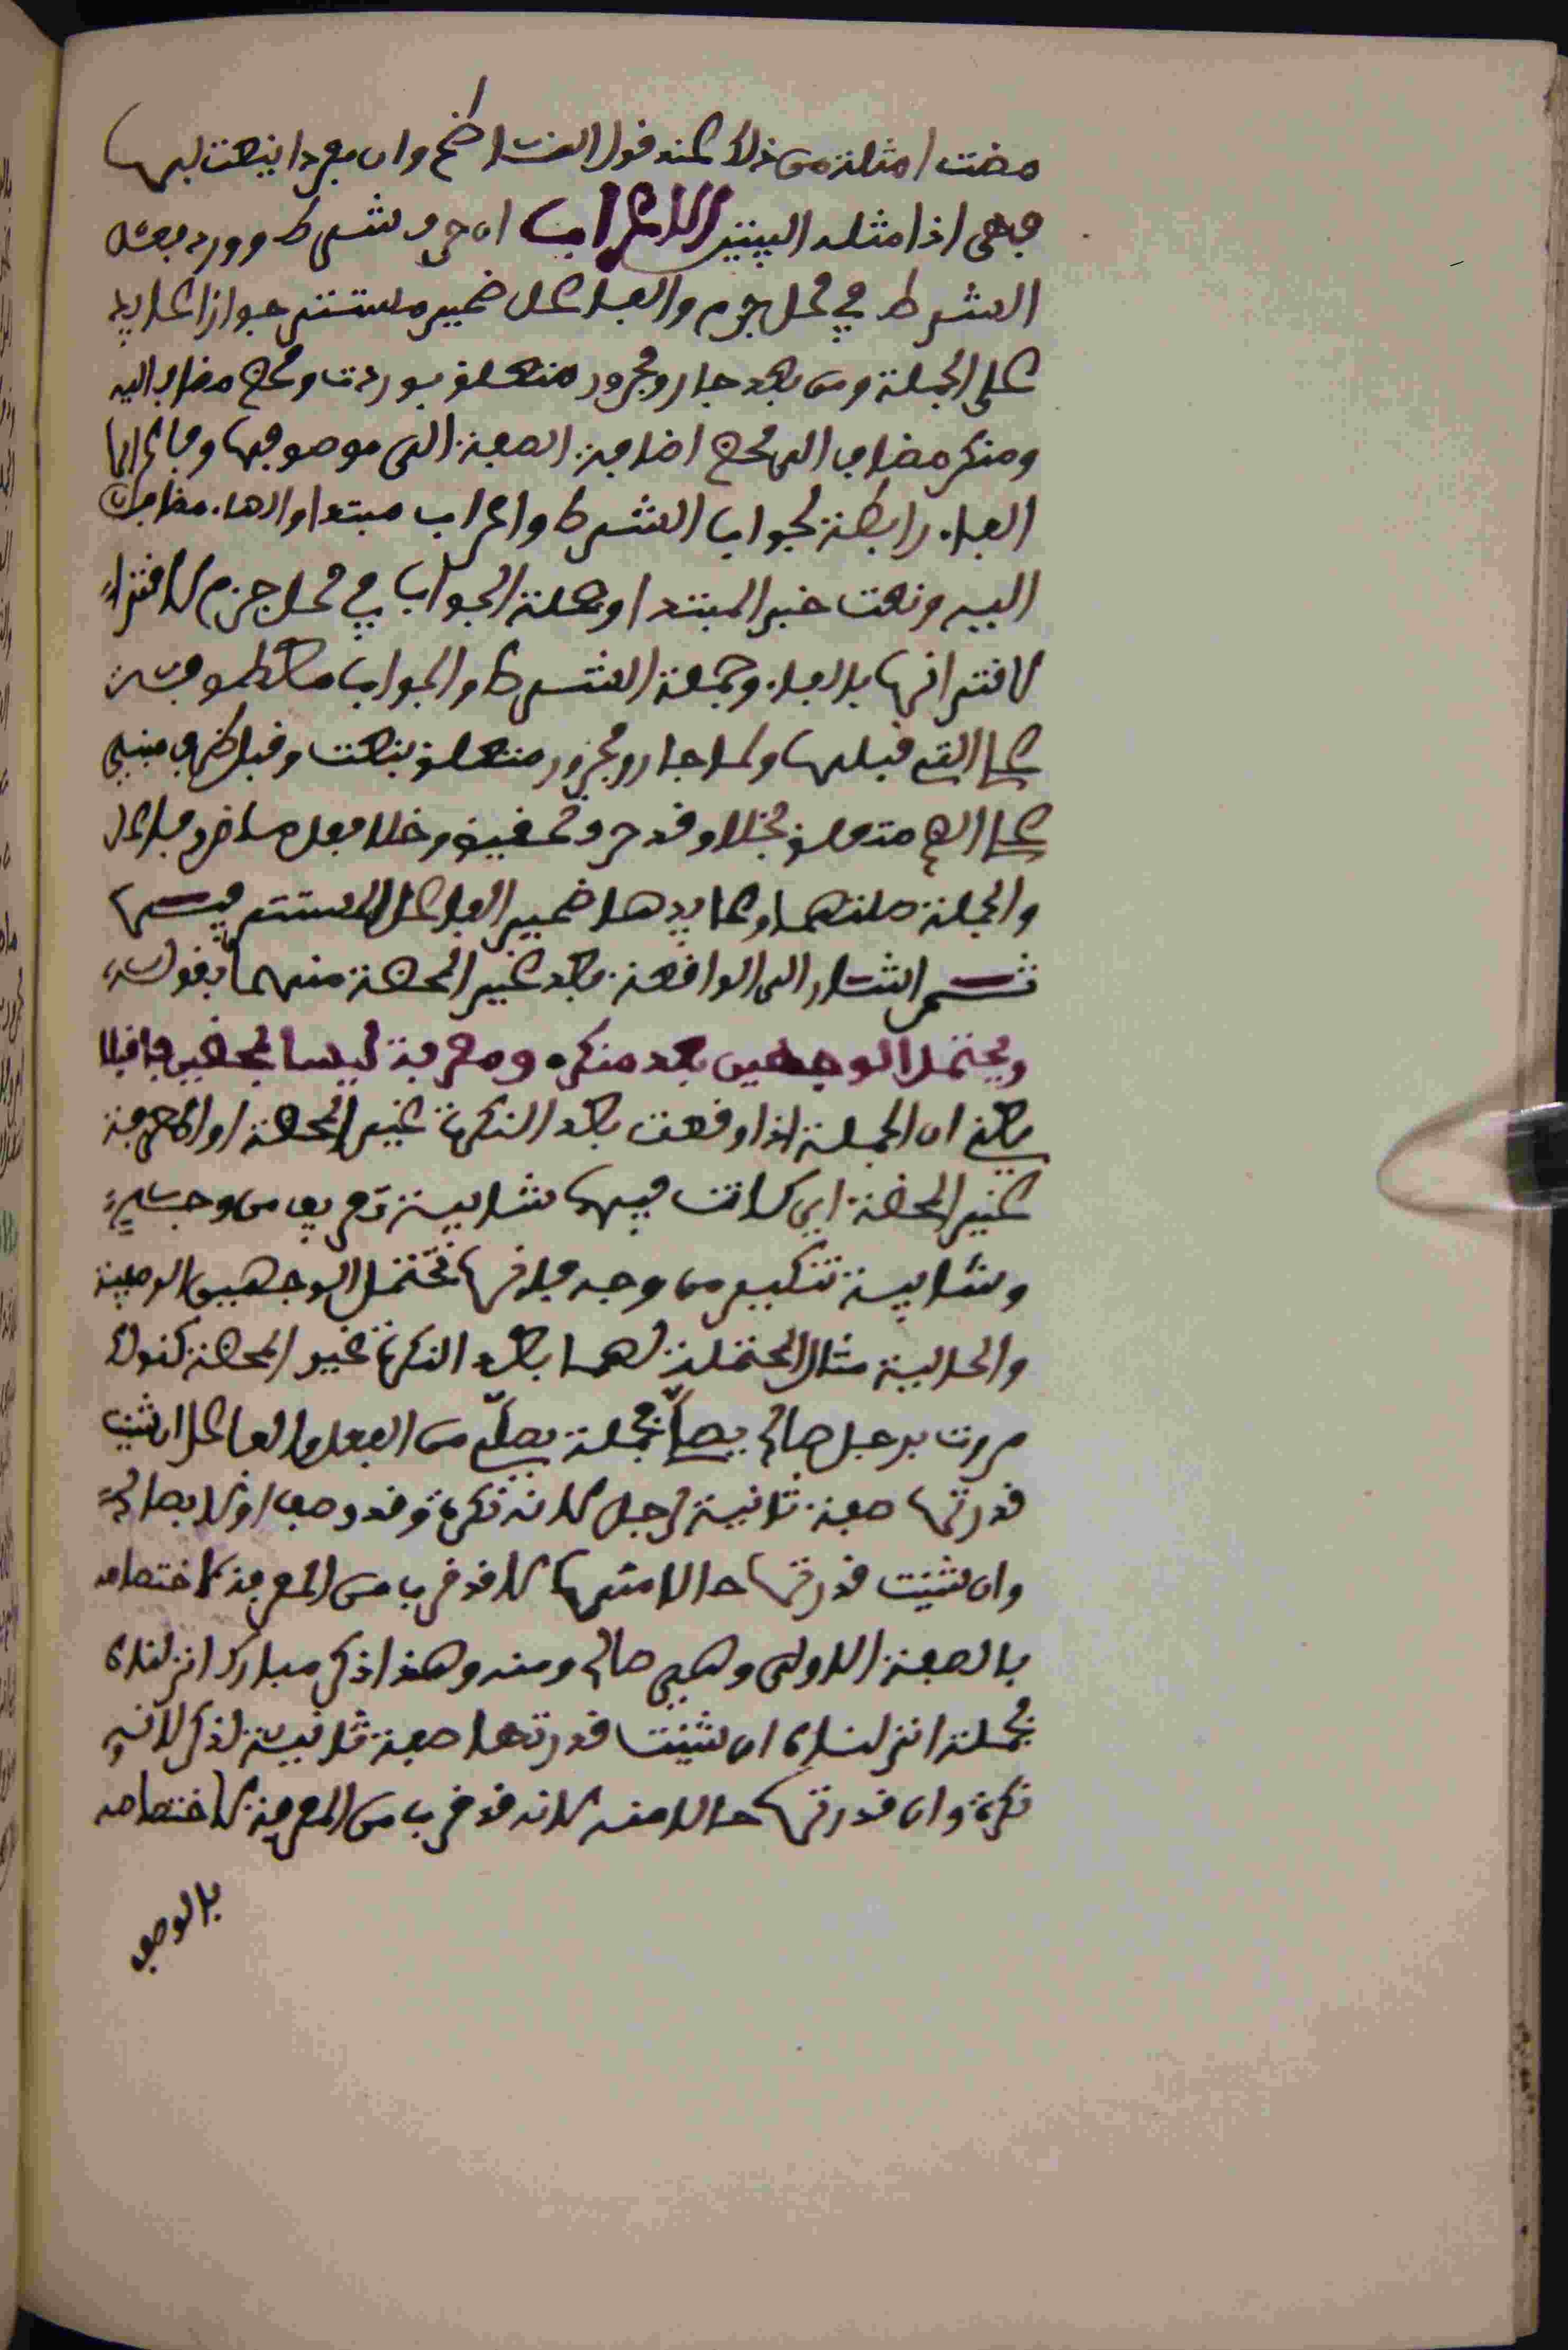 مضت امثلة من ذلك عند قول الناظم وان بمفردا ينعت لبها
فهي اذا مثله البيتين الاعراب ان حرف شرط وورد فعل
الشرط في محل جزم والفاعل ضمير مستتر جوازا عايد
على الجملة ومن بعد جار ومجرور متعلق بوردت ومحض مضاف اليه
ومنكر مضاف الى محض اضافة الصفة الى موصوفها وفاعرابا
الفاء رابطة لجواب الشرط واعراب مبتدا والهاء مضاف
اليه ونعت خبر المبتدا وجملة الجواب في محل جزم لاقترا
لاقترانها بالفاء وجملة الشرط والجواب معطوفة
على التي قبلها ولما جار ومجرور متعلق بنعت وقبل ظرف مبني
على الضم متعلق بخلا وقد حرف تحقيق وخلا فعل ماض وفاعل
والجملة صلتهما وعايدها ضمير الفاعل المستتر فيها
ثم اشار الى الواقعة بعد غير المحضة منهما بقوله
ويحتمل الوجهين بعد منكر ومعرفة ليسا بمحضين فاقبلا
يعني ان الجملة اذا وقعت بعد النكرة غير المحضة او المعرفة
غير المحضة اي كانت فيها شايبة تعريف من وجه
وشايبة تنكير من وجه فانها تحتمل الوجهين الوصفية
والحالية مثال المحتملة لهما بعد النكرة غير المحضة كقولك
مررت برجل صالح يصلي فجملة يصلي من الفعل والفاعل ان شيت
قدرتها صفة ثانية لرجل لانه نكرة وقد وصف اولا بصالح
وان شيت قدرتها حالا منها لانه قد قرب من المعرفة لاختصاصه
بالصفة الاولى وهي صالح ومنه وهذا ذكر مبارك انزلناه
فجملة انزلناه ان شيت قدرتها صفة ثانية لذكر لانه
نكرة وان قدرتها حالا منه لانه قد قرب من المعرفة لاختصاصه
بالوصف